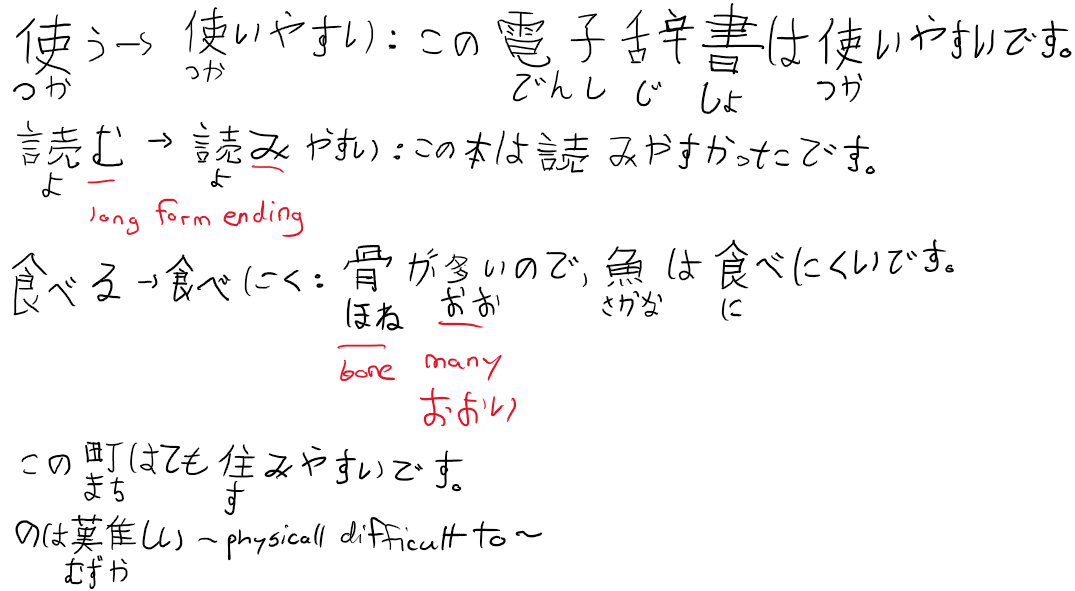 使う→ 使いやすい：この電子辞書は使いやすいです。
つか つか でんし じしょ つか
読む → 読みやすい：この本は読みやすかったです。
よ よ
long form ending
食べる→食べにく：骨が多いので, 魚は食べにくいです。
ほね おお さかな に
bone many
おおい
この町はても住みやすいです。
まち す
のは難しい ~physicall difficult to~
むずか